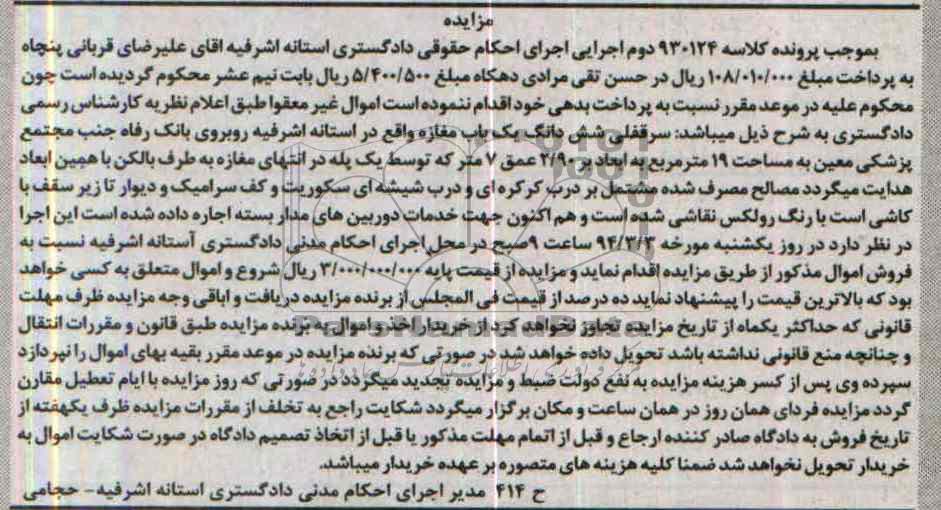 مزایده
بموجب پرونده کلاسه ۹۳۰۱۲۴ دوم اجرایی اجرای احکام حقوقی دادگستری استانه اشرفیه اقای علیرضای قربانی پنچاه
به پرداخت مبلغ ۱۰۸/۰۱۰/۰۰۰ ریال در حسن تقی مرادی دهکاه مبلغ ۵/۴۰۰/۵۰۰ ریال بابت نیم عشر محکوم گردیده است چون
محکوم علیه در موعد مقرر نسبت به پرداخت بدهی خود اقدام ننموده است اموال غیر معقوا طبق اعلام نظر به کارشناس رسمی
دادگستری به شرح ذیل میباشد: سرقفلی شش دانگ یک باب مغازه واقع در استانه اشرفیه روبروی بانک رفاه جنب مجتمع
پزشکی معین به مساحت ۱۹ مترمربع به ابعاد بر ۲/۹۰ عمق ۷ متر که توسط یک پله در انتهای مغازه به طرف بالکن با همین ابعاد
هدایت میگردد مصالح مصرف شده مشتمل بر درب کرکره ای و درب شیشه ای سکوریت و کف سرامیک و دیوار تا زیر سقف با
کاشی است با رنگ رولکس نقاشی شده است و هم اکنون جهت خدمات دوربین های مدار بسته اجاره داده شده است این اجرا
در نظر دارد در روز یکشنبه مورخه ۹۴/۳/۳ ساعت ۹صبح در محل اجرای احکام مدنی دادگستری آستانه اشرفیه نسبت به
فروش اموال مذکور از طریق مزایده اقدام نماید و مزایده از قیمت پایه ۳/۰۰۰/۰۰۰/۰۰۰ ریال شروع و اموال متعلق به کسی خواهد
بود که بالاترین قیمت را پیشنهاد نماید ده درصد از قیمت فی المجلس از برنده مزایده دریافت و اباقی وجه مزایده ظرف مهلت
قانونی که حداکثر یکماه از تاریخ مزایده تجاوز نخواهد کرد از خریدار اخذ و اموال به برنده مزایده طبق قانون و مقررات انتقال
و چنانچه منع قانونی نداشته باشد تحویل داده خواهد شد در صورتی که برنده مزایده در موعد مقرر بقیه بهای اموال را نپردازد
سپرده وی پس از کسر هزینه مزایده به نفع دولت ضبط و مزایده تجدید میگردد در صورتی که روز مزایده با ایام تعطیل مقارن
گردد مزایده فردای همان روز در همان ساعت و مکان برگزار میگردد شکایت راجع به تخلف از مقررات مزایده ظرف یکهفته از
تاریخ فروش به دادگاه صادر کننده ارجاع و قبل از اتمام مهلت مذکور یا قبل از اتخاذ تصمیم دادگاه در صورت شکایت اموال به
خریدار تحویل نخواهد شد ضمنا کلیه هزینه های متصوره بر عهده خریدار میباشد.
ح ۴۱۴ مدیر اجرای احکام مدنی دادگستری استانه اشرفیه- حجامی